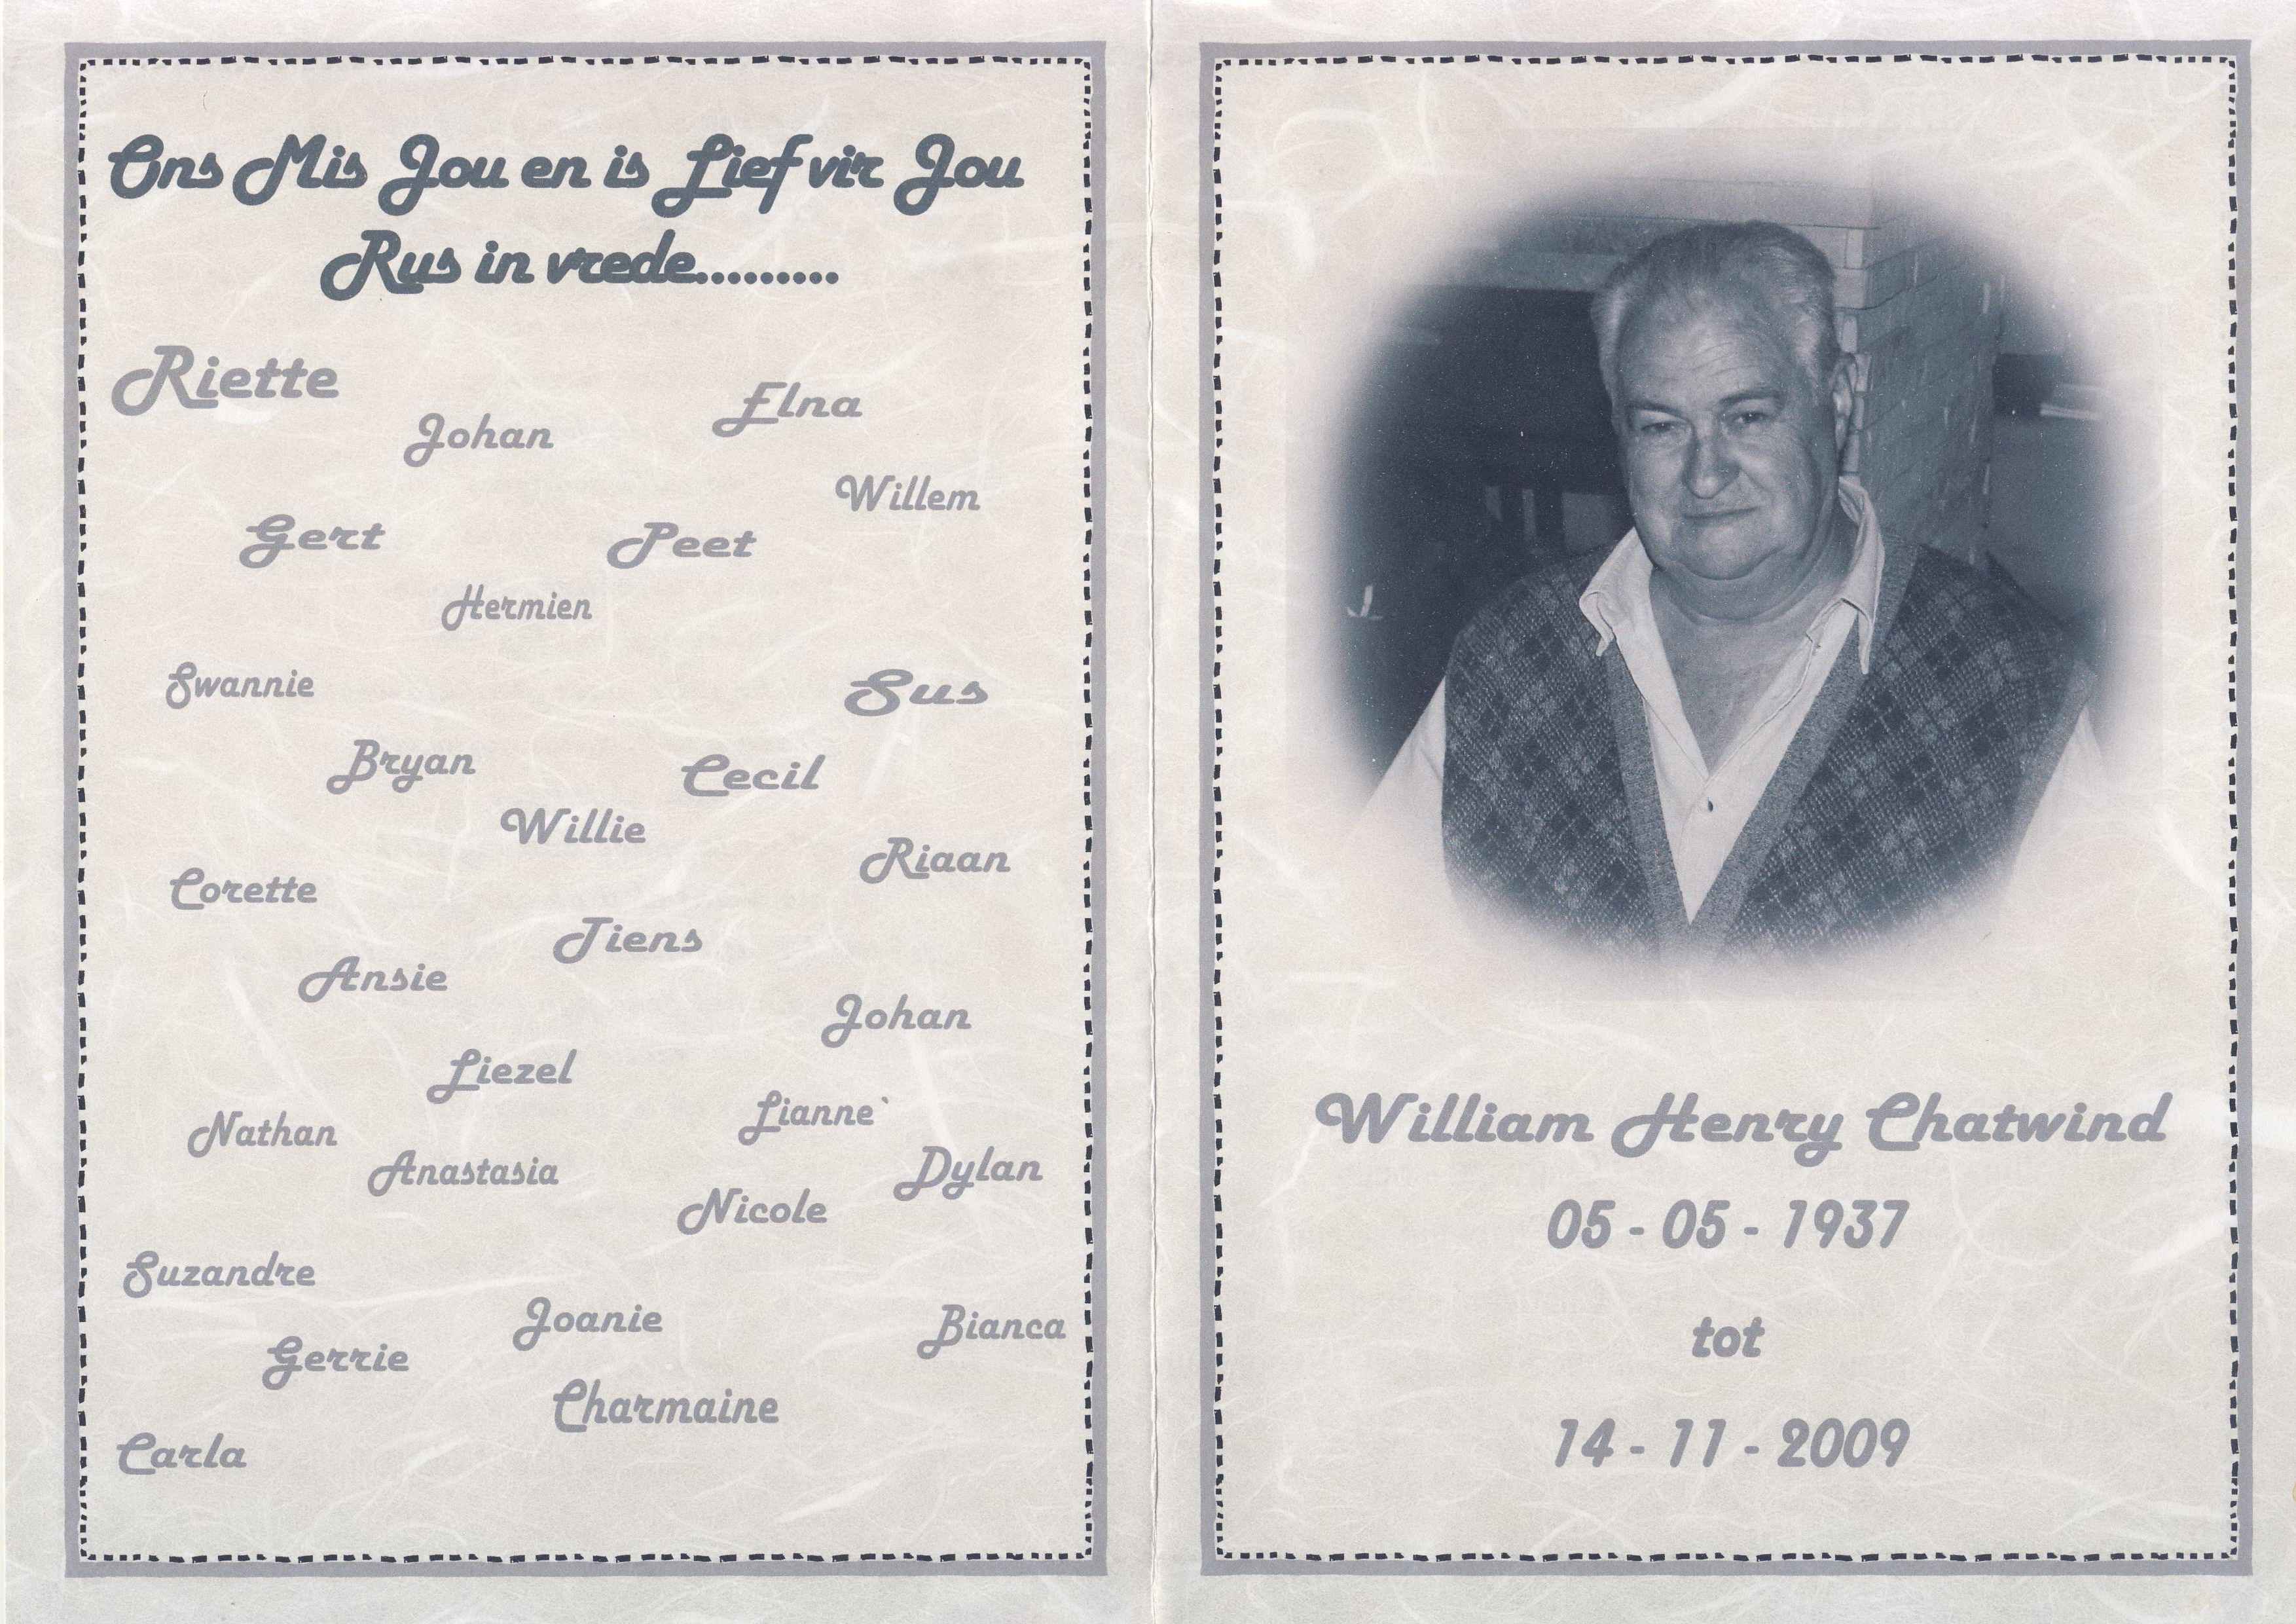 Ons Mis Jou en is Lief vir Jou
Rus in vrede..........
Riette
Elna
Johan
Willem
Gert
Peet
Hermien
Swannie
Sus
Bryan
Cecil
Willie
Riaan
Corette
Tiens
Ansie
Johan
Liezel
Lianne`
Nathan
Anastasia
Dylan
Nicole
Suzandre
Joanie
Bianca
Gerrie
Charmaine
Carla
William Henry Chatwind
05 - 05 - 1937
tot
14 - 11 - 2009